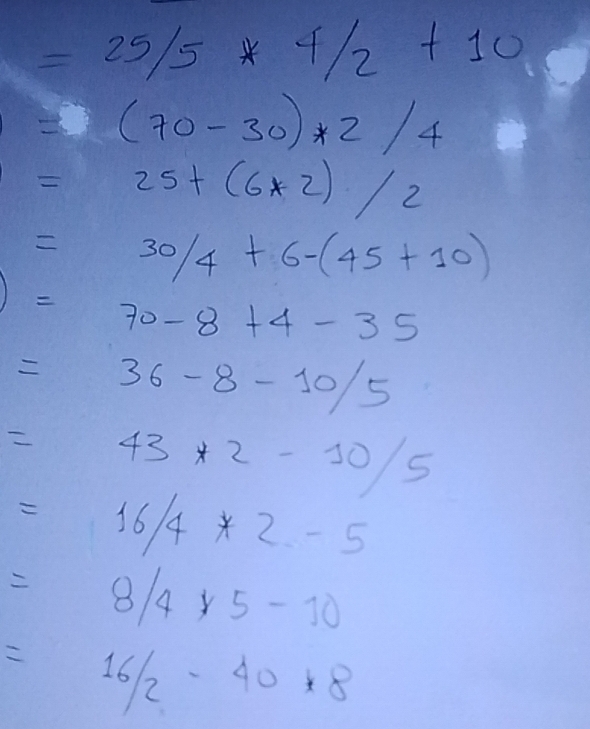 = 25/5 * 4/2 + 10
) = (70-30)*2/4
) = 25+(6*2)/2
= 30/4 + 6-(45+10)
) = 70-8+4-35
= 36-8-10/5
= 43*2-10/5
= 16/4*2-5
= 8/4*5-10
= 16/2-40*8